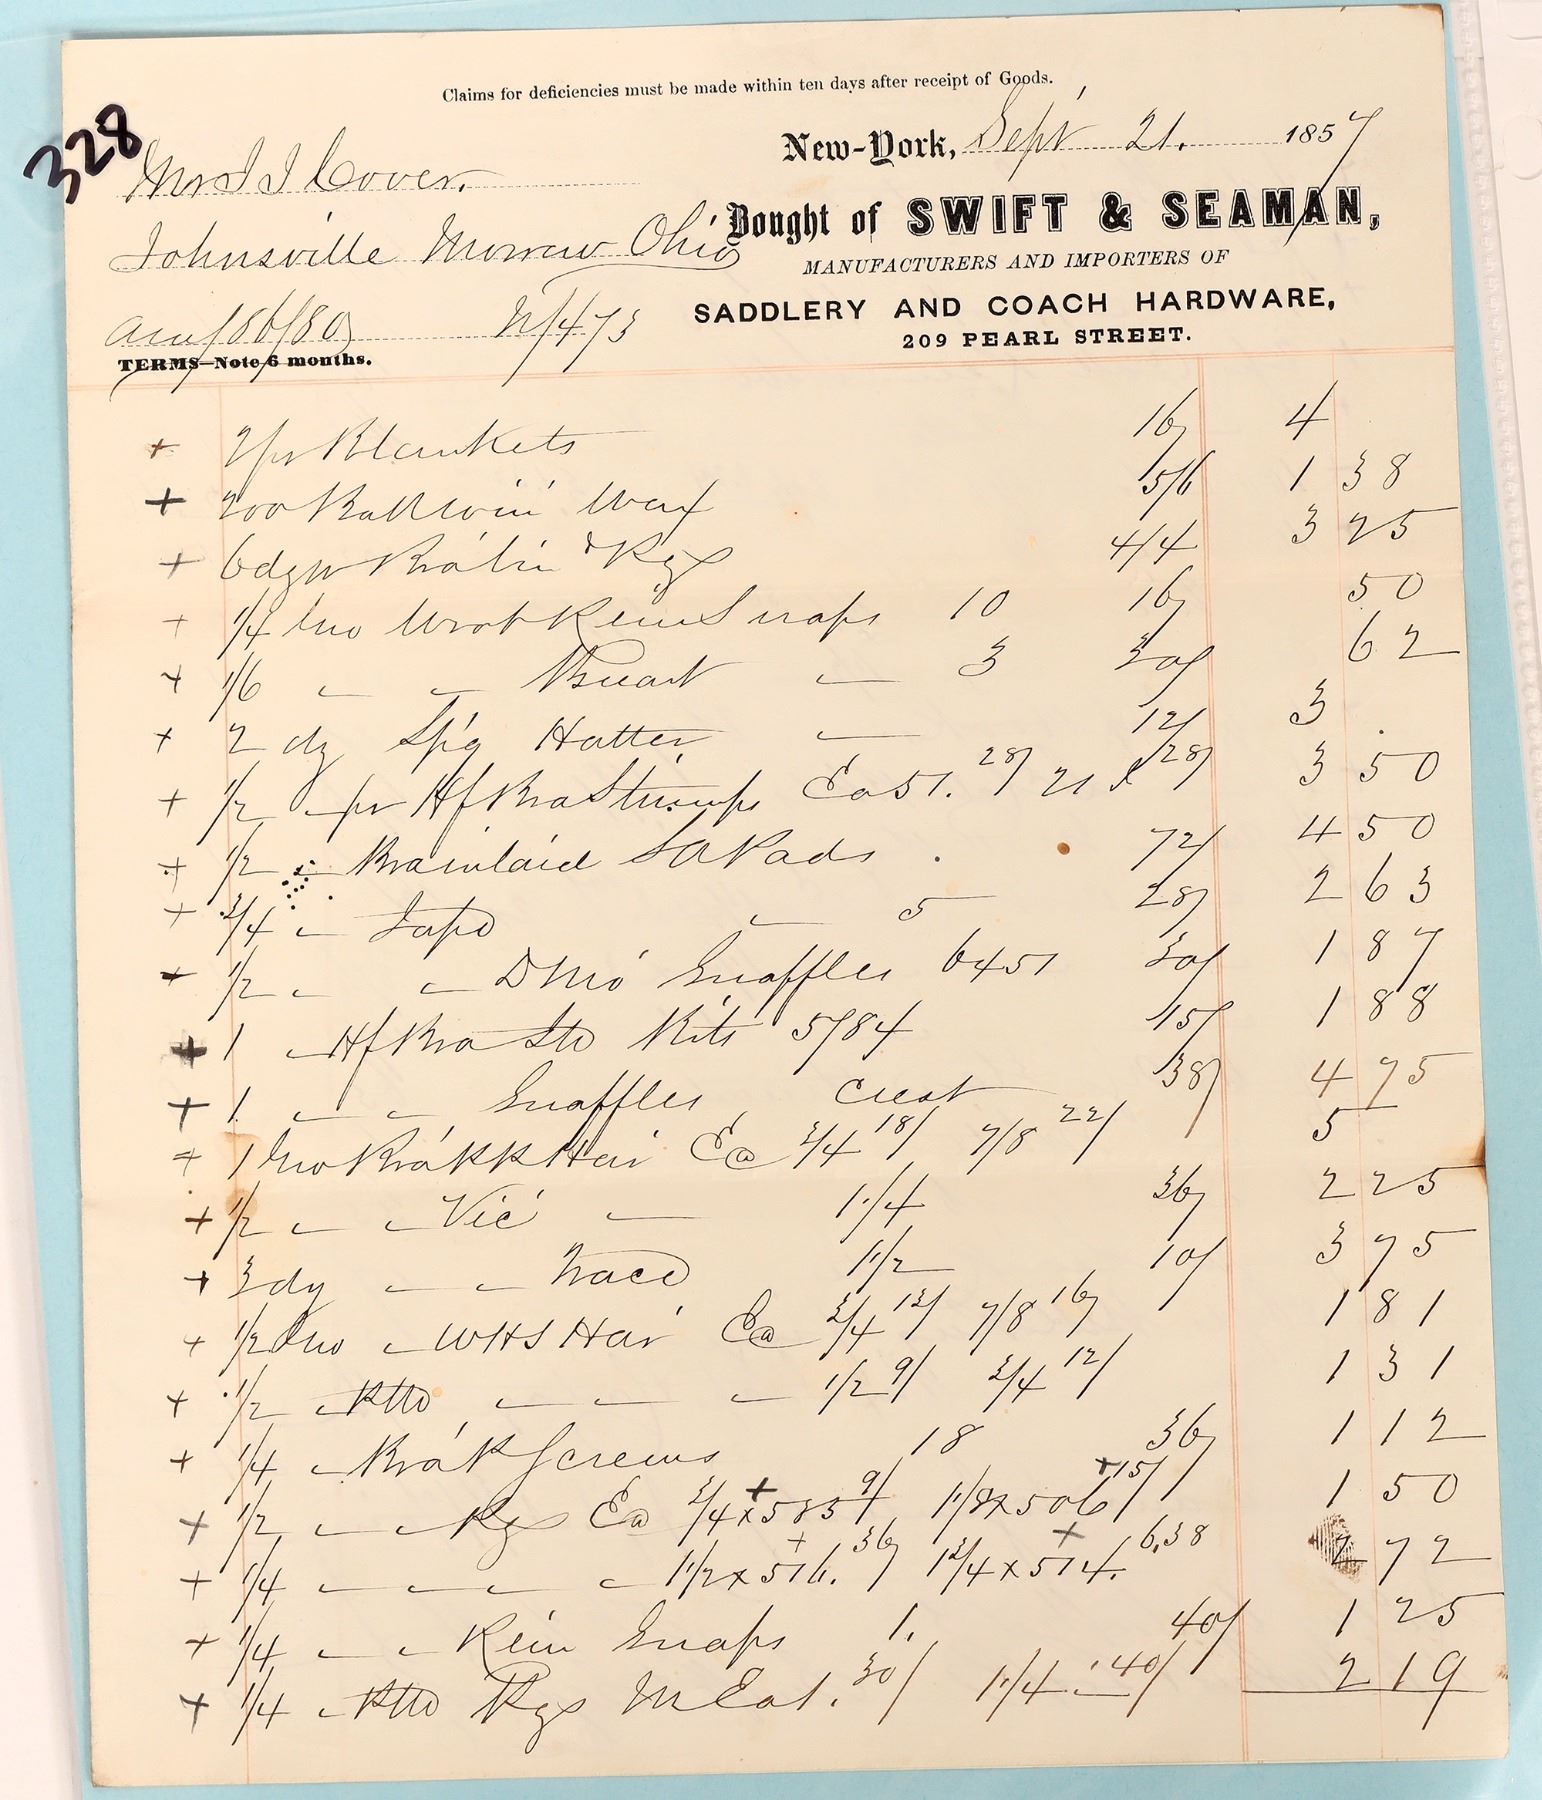 Claims for deficiencies must be made within ten days after receipt of Goods.
328
New-York, Sept 21. 1857
Mr J J Cover.
Bought of SWIFT & SEAMAN,
Johnsville Morrow Ohio
MANUFACTURERS AND IMPORTERS OF
SADDLERY AND COACH HARDWARE,
209 PEARL STREET.
TERMS—Note 6 months.
+ 2 pr Blankets 16/ 4
+ 200 Wax 5/6 1 38
+ 4/4 3 25
+ 1/4 Gro Wrot Rein Snaps 10 16/ 50
+ 1/6 " " Breast " 3 30/ 62
+ 2 dz Sp'g Halter " 12/ 3
+ 1/2 " pr Hf Bra Stirrups Ea 51. 28/ 21 & 28/ 3 50
+ 1/2 " Bra inlaid Pads 72/ 4 50
+ 3/4 " Jap'd " 5 28/ 2 63
+ 1/2 " " Snaffles 6451 30/ 1 87
+ 1 " Hf Bra Bits 5784 15/ 1 88
+ 1 " " Snaffles Crest 38/ 4 75
+ 1 Gro Ea 3/4 18/ 7/8 22/ 5
+ 1/2 " " " 1 1/4 36/ 2 25
+ 3 dz " " Trace 1 1/2 10/ 3 75
+ 1/2 Gro " Ea 3/4 13/ 7/8 16/ 1 81
+ 1/2 " " " " 1/2 9/ 3/4 12/ 1 31
+ 1/4 " Screws 18 36/ 1 12
+ 1/2 " " Rgs Ea 3/4 x 585 9/ 1 1/8 x 506 15/ 1 50
+ 1/4 " " " " 1 1/2 x 516. 36/ 1 3/4 x 514. 6.38 2 72
+ 1/4 " " Rein Snaps 1. 40/ 1 25
+ 1/4 " Rgs 30/ 1 1/4 " 40/ 2 19